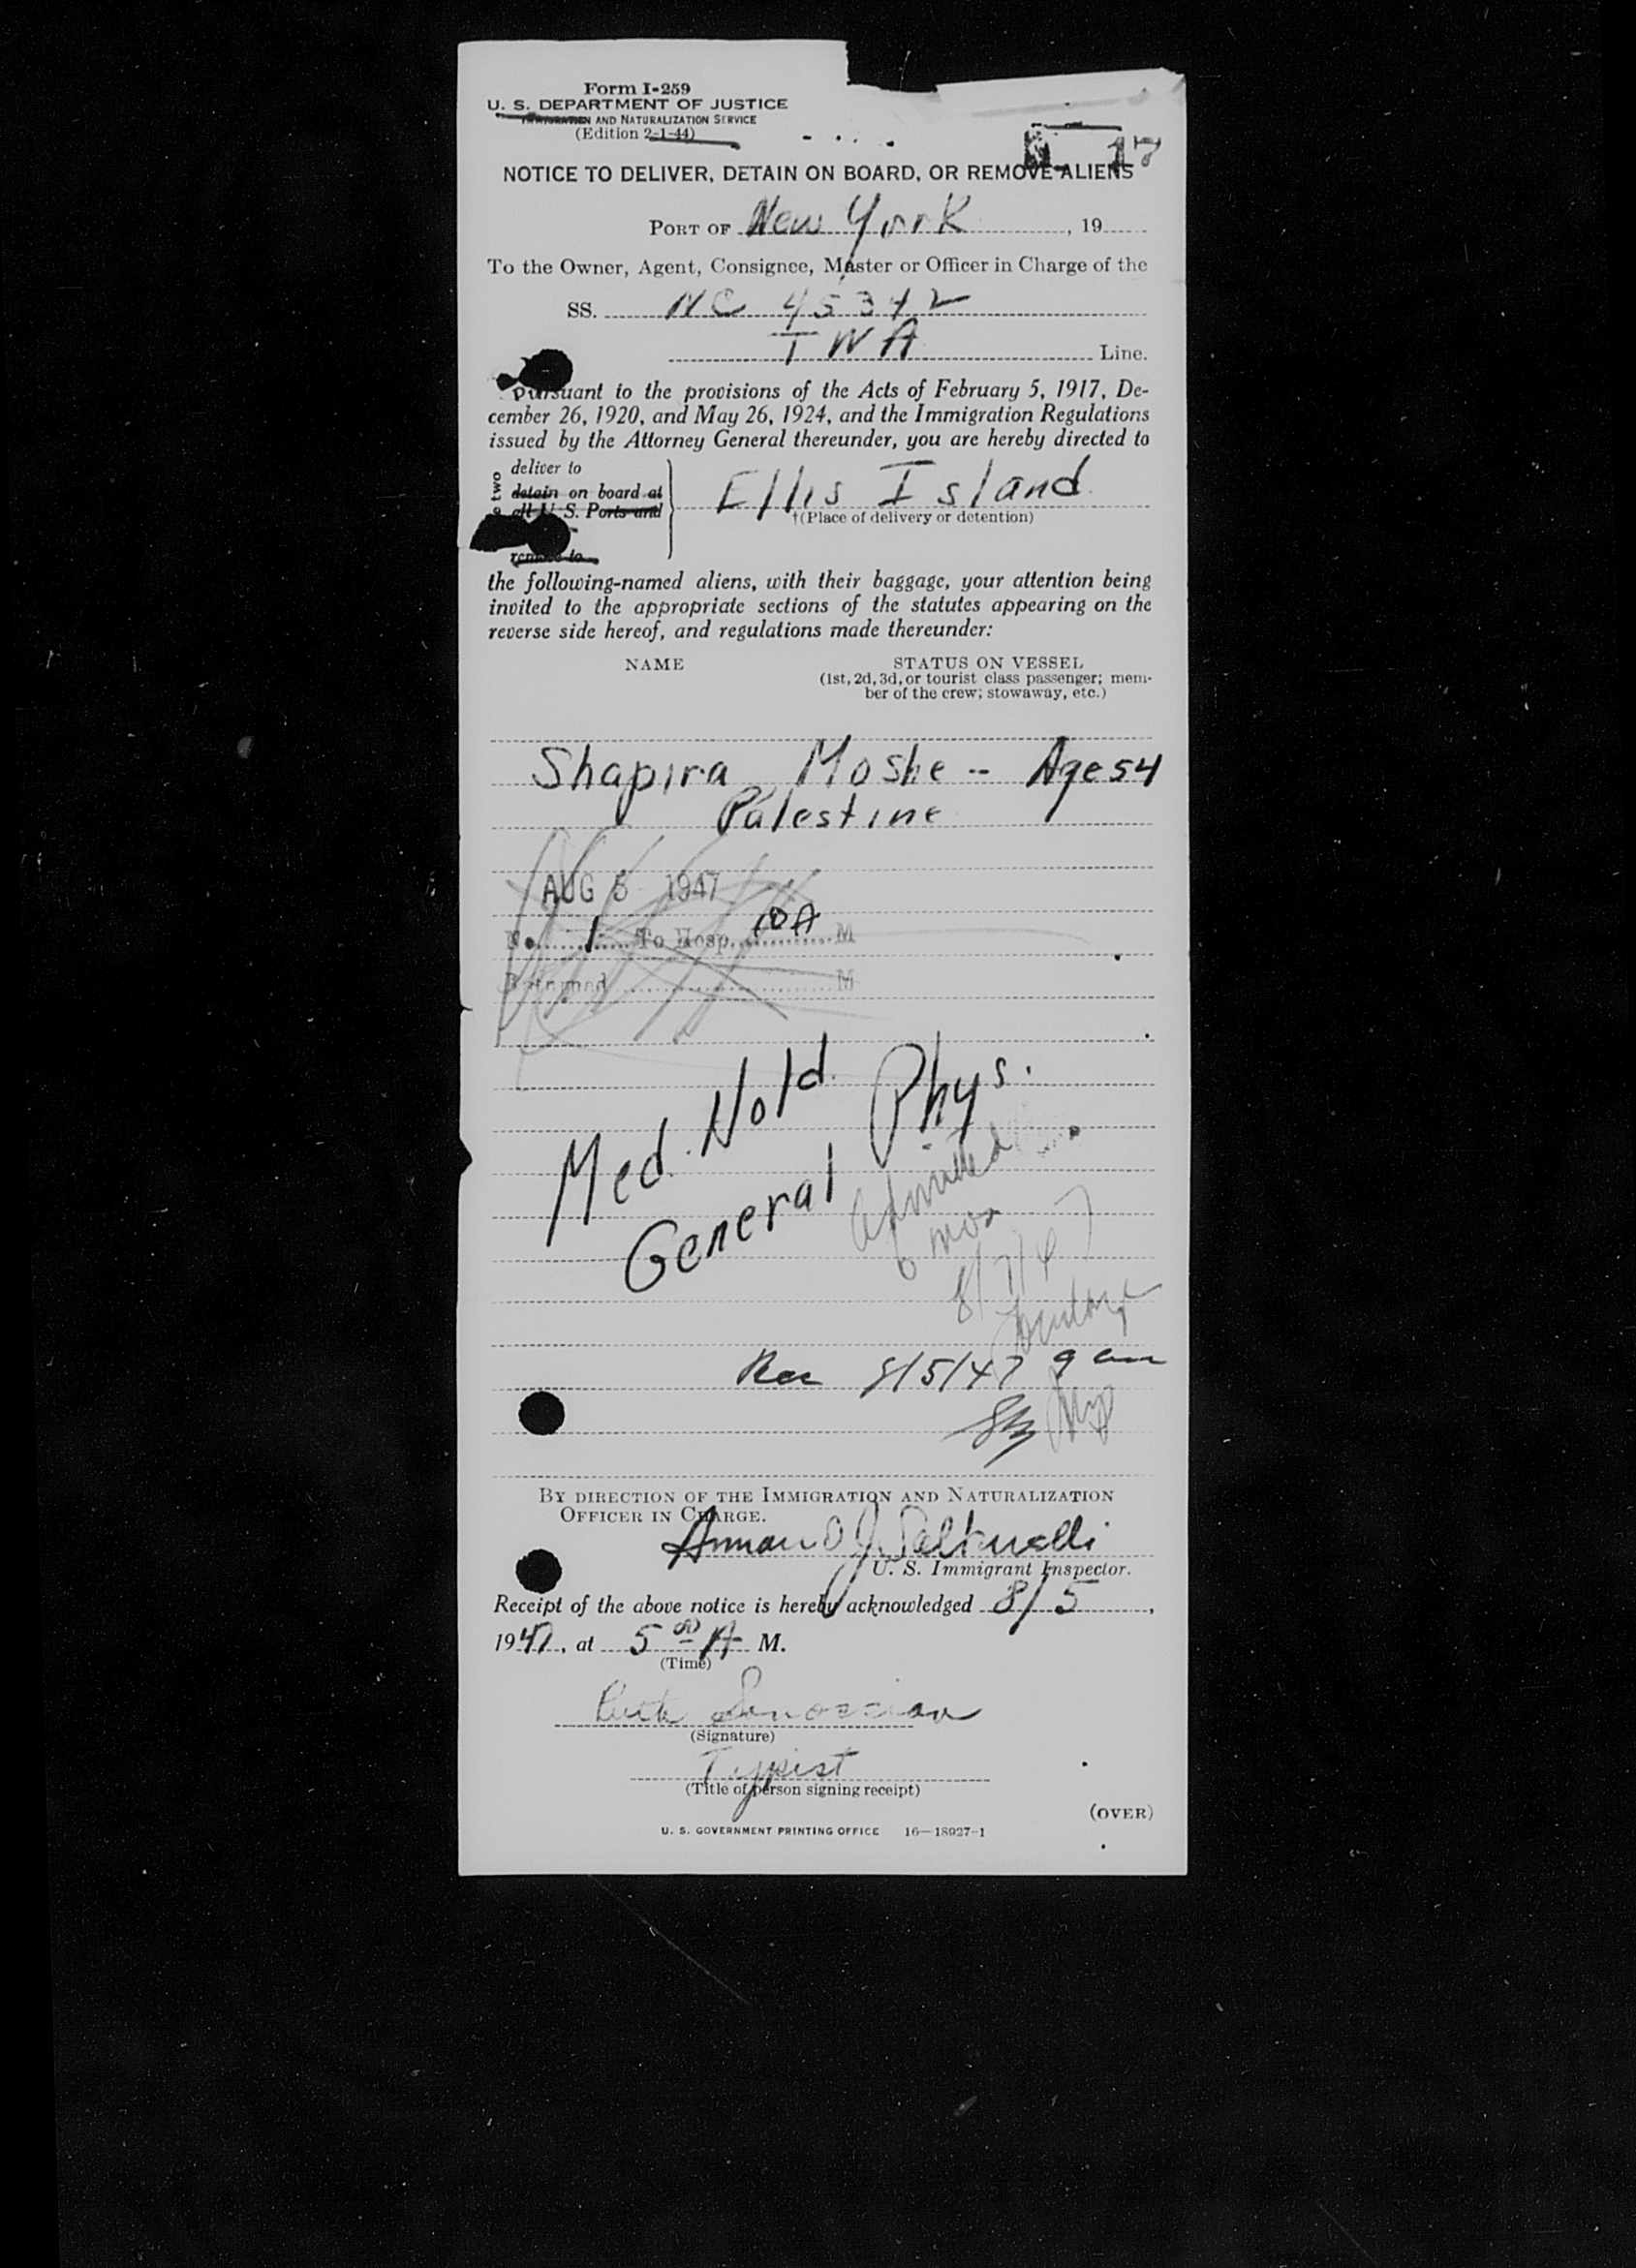 Form I-259
U. S. DEPARTMENT OF JUSTICE
IMMIGRATION AND NATURALIZATION SERVICE
(Edition 2-1-44)
17
NOTICE TO DELIVER, DETAIN ON BOARD, OR REMOVE ALIENS
PORT OF New York, 19
To the Owner, Agent, Consignee, Master or Officer in Charge of the
SS. NC 45342
TWA Line.
Pursuant to the provisions of the Acts of February 5, 1917, De-
cember 26, 1920, and May 26, 1924, and the Immigration Regulations
issued by the Attorney General thereunder, you are hereby directed to
deliver to
detain on board at
all U. S. Ports and
Ellis Island
†(Place of delivery or detention)
two
the following-named aliens, with their baggage, your attention being
invited to the appropriate sections of the statutes appearing on the
reverse side hereof, and regulations made thereunder:
NAME
STATUS ON VESSEL
(1st, 2d, 3d, or tourist class passenger; mem-
ber of the crew; stowaway, etc.)
Shapira Moshe -- Age 54
Palestine
AUG 5 1947
1 To Hosp. 10 A M
Returned M
Med. Hold. Phys.
General
Admitted
6 mos
8/7/47
Rec 8/5/47 9 am
BY DIRECTION OF THE IMMIGRATION AND NATURALIZATION
OFFICER IN CHARGE.
U. S. Immigrant Inspector.
Receipt of the above notice is hereby acknowledged 8/5,
1947, at 5 00 A M.
(Time)
Ruth
(Signature)
Typist
(Title of person signing receipt)
(OVER)
U. S. GOVERNMENT PRINTING OFFICE 16—18927-1